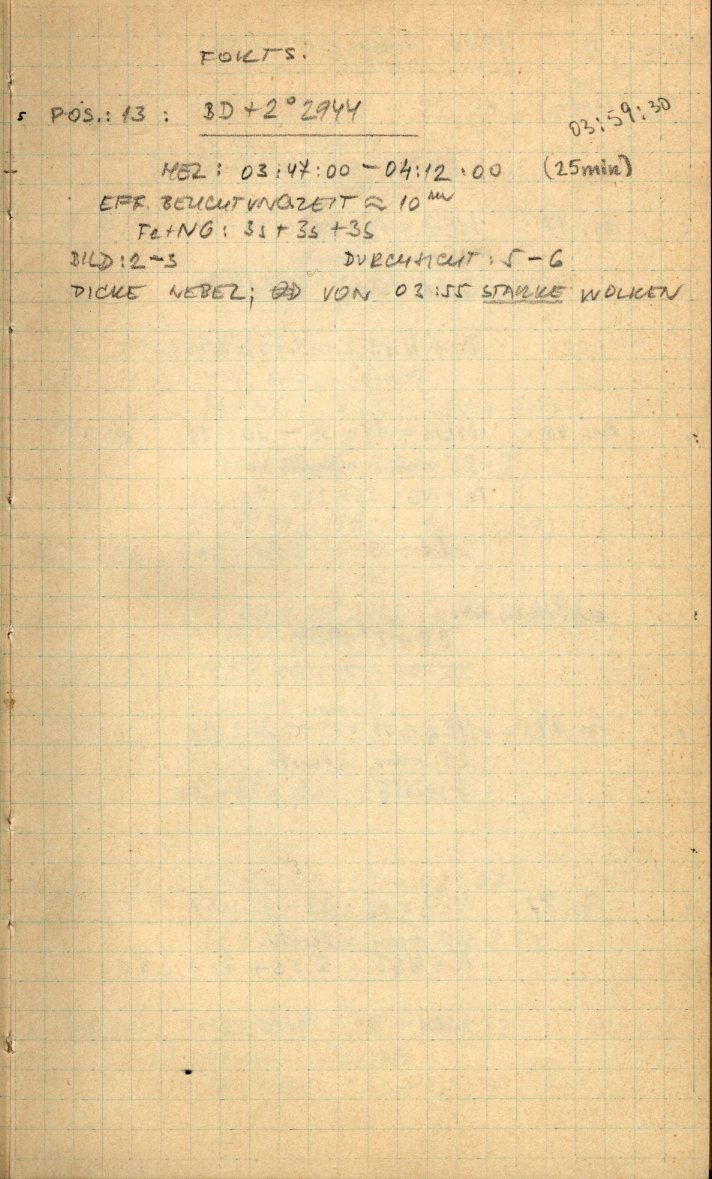 FORTS.
5 POS.: 13 : BD + 2° 2944
03:59:30
MEZ : 03:47:00 - 04:12:00 (25min)
EFF. BELICHTUNGSZEIT ≈ 10 min
Fe+NG : 3s + 3s + 3s
BILD : 2-3 DURCHSICHT : 5-6
DICKE NEBEL; VON 03:55 STARKE WOLKEN